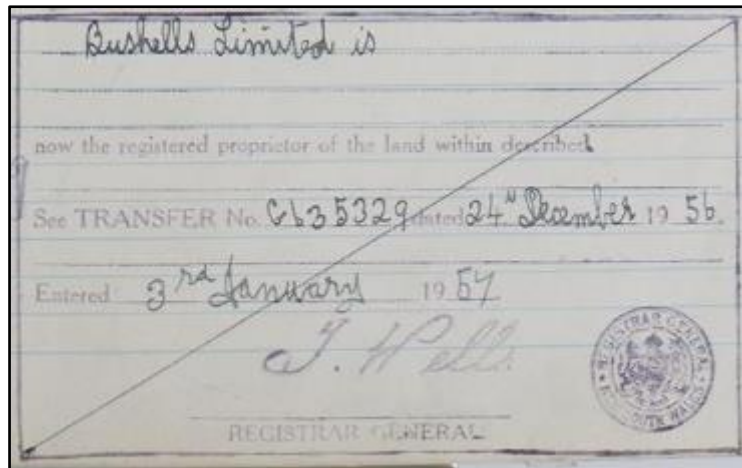 Bushells Limited is
now the registered proprietor of the land within described
See TRANSFER No. G635329 dated 24th December 1956.
Entered 3rd January 1957
J. Wells
REGISTRAR GENERAL
REGISTRAR GENERAL
NEW SOUTH WALES